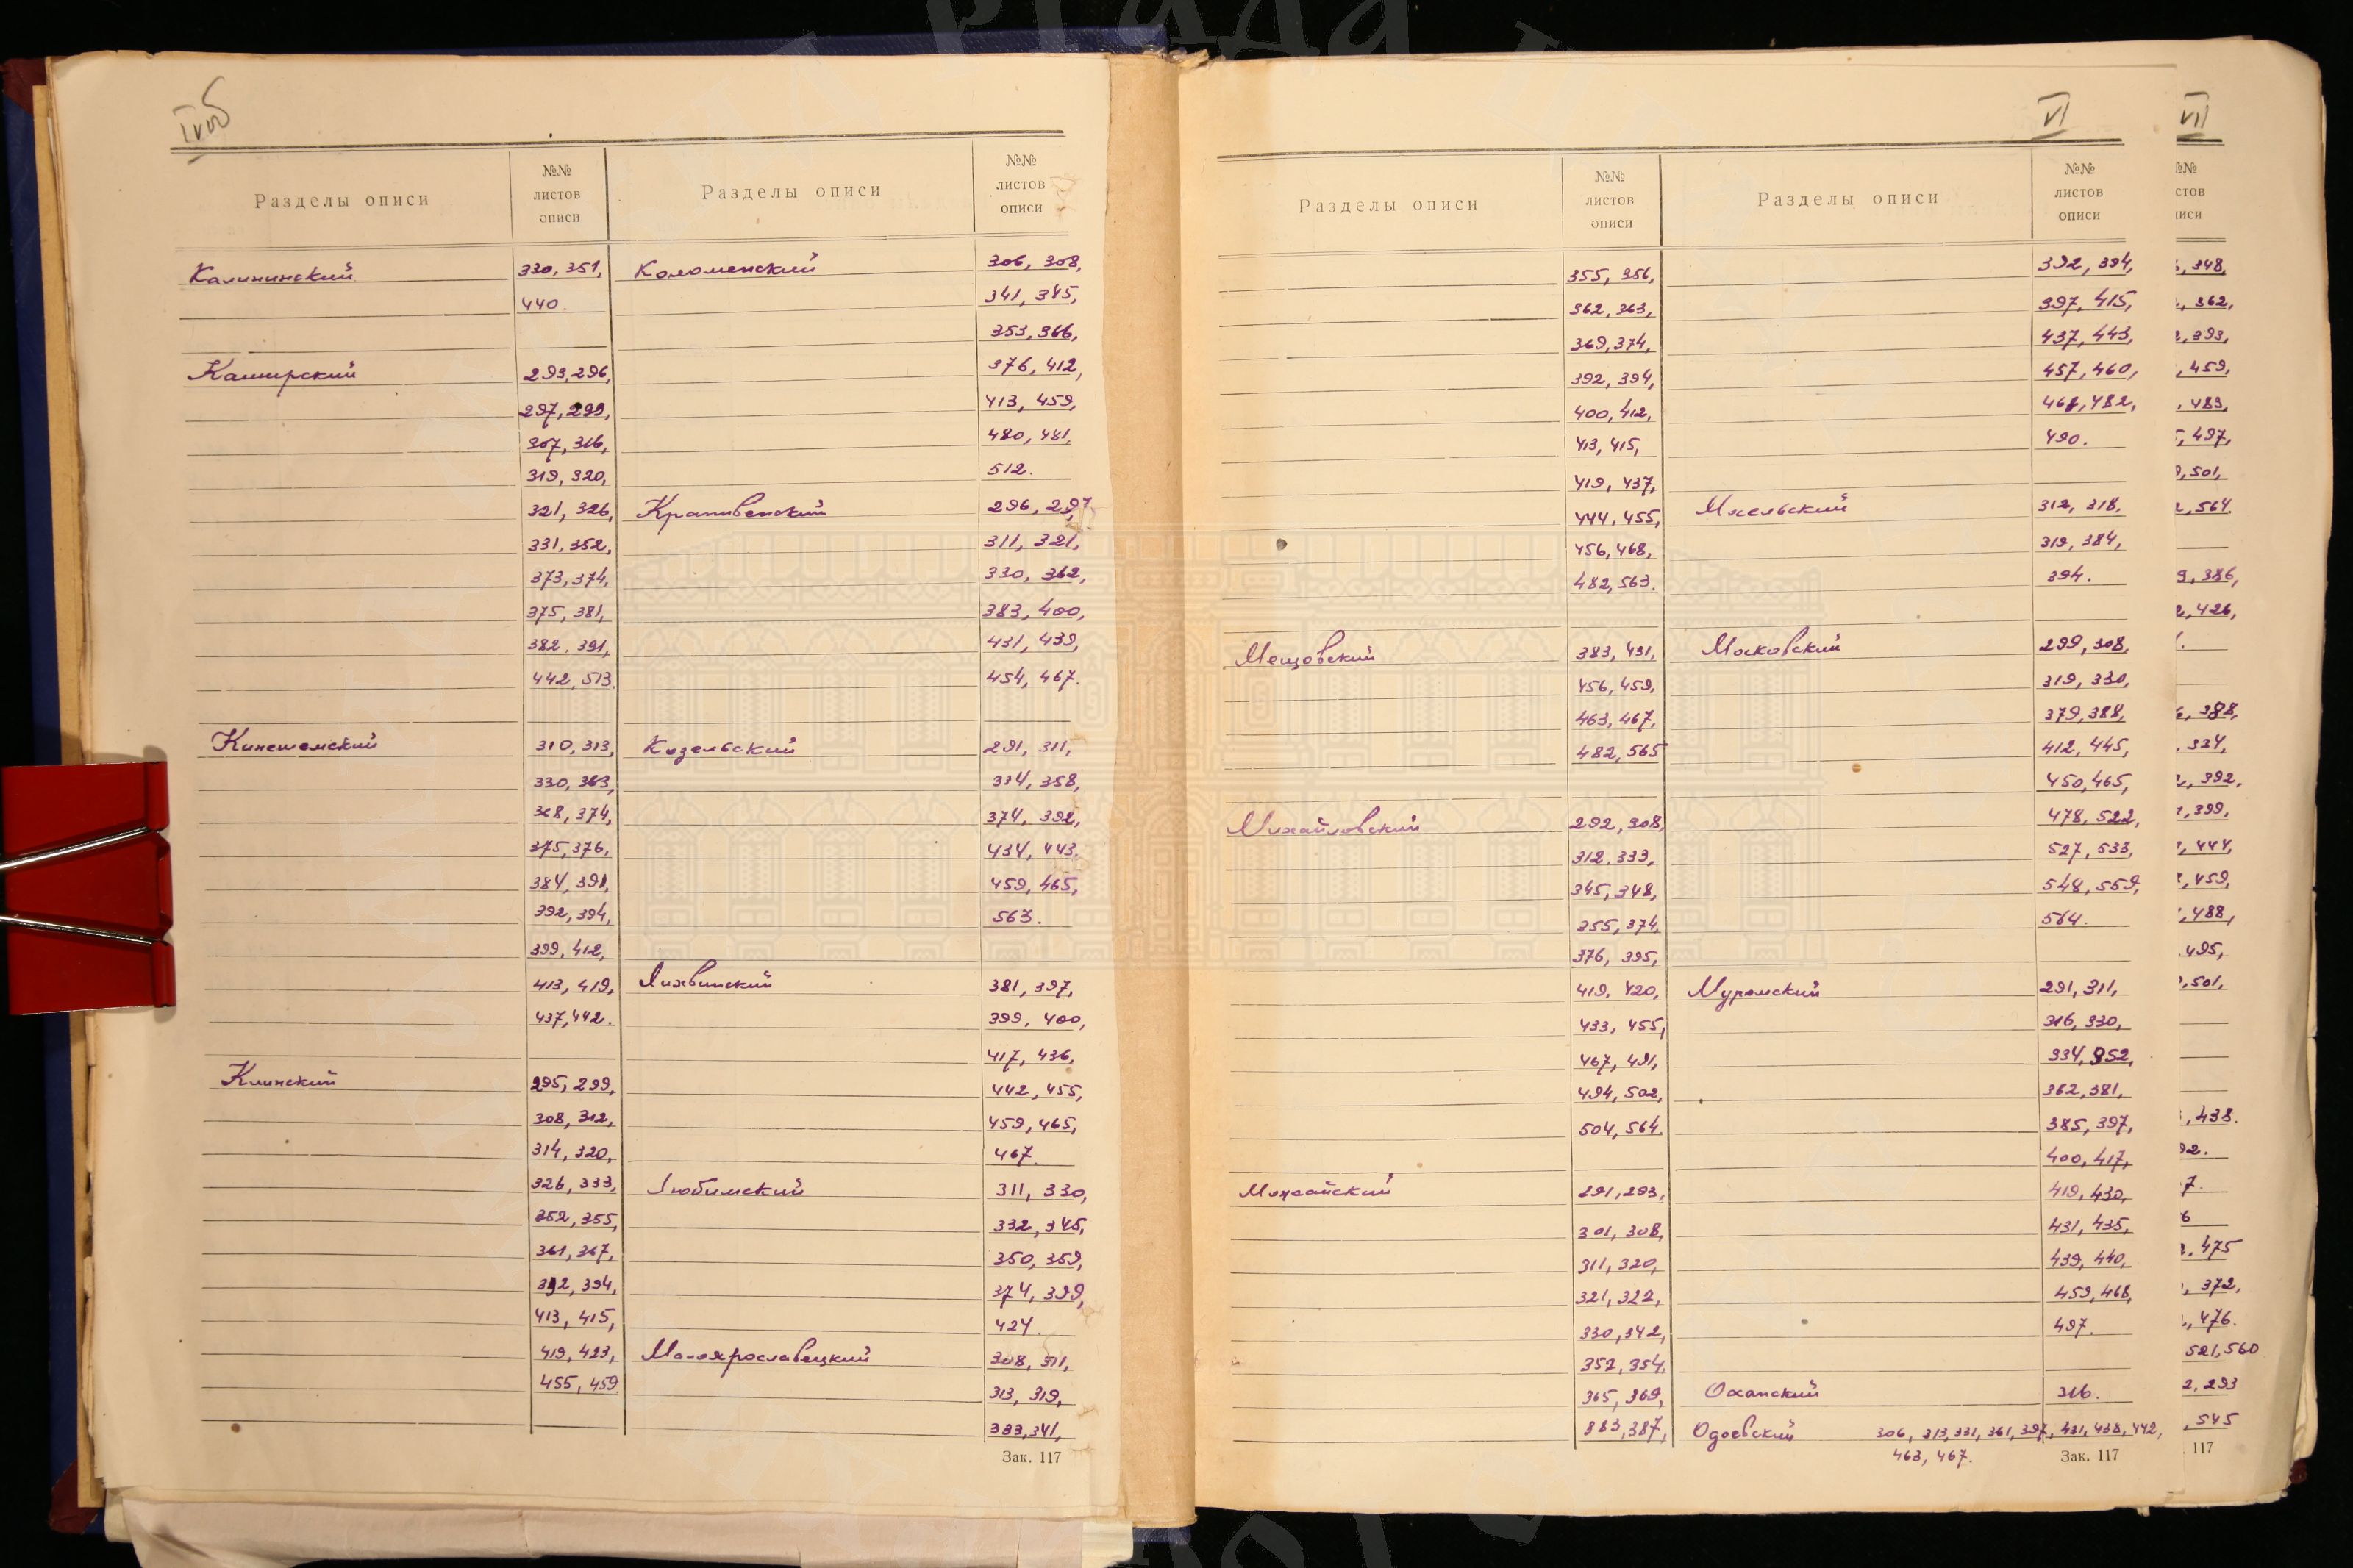 IV об
Разделы описи
№№
листов
описи
Калининский
330, 351,
440.
Каширский
293, 296,
297, 299,
307, 316,
319, 320,
321, 326,
331, 352,
373, 374,
375, 381,
382. 391,
442, 513.
Кинешемский
310, 313,
330, 363,
368, 374,
375, 376,
384, 391,
392, 394,
399, 412,
413, 419,
437, 442.
Клинский
295, 299,
308, 312,
314, 320,
326, 333,
352, 355,
361, 367,
392, 394,
413, 415,
419, 423,
455, 459.
Разделы описи
№№
листов
описи
Коломенский
306, 308,
341, 345,
353, 366,
376, 412,
413, 459,
480, 481,
512.
Крапивенский
296, 297,
311, 321,
330, 362,
383, 400,
431, 439,
454, 467.
Козельский
291, 311,
334, 358,
374, 392,
434, 443.
459, 465,
563.
Лихвинский
381, 397,
399, 400,
417, 436,
442, 455,
459, 465,
467.
Любимский
311, 330,
332, 345,
350, 359,
374, 399,
424.
Малоярославецкий
308, 311,
313, 319,
333, 341,
Зак. 117
VI
Разделы описи
№№
листов
описи
355, 356,
362, 363,
369, 374,
392, 394,
400, 412,
413, 415,
419, 437,
444, 455,
456, 468,
482, 563.
Мещовский
383, 431,
456, 459,
463, 467,
482, 565
Михайловский
292, 308,
312, 333,
345, 348,
355, 374,
376, 395,
419, 420,
433, 455,
467, 491,
494, 502,
504, 564.
Можайский
291, 293,
301, 308,
311, 320,
321, 322,
330, 342,
352, 354,
365, 369,
383, 387,
Разделы описи
№№
листов
описи
392, 394,
397, 415,
437, 443,
457, 460,
468, 482,
490.
312, 318,
319, 384,
394.
Московский
299, 308,
319, 330,
379, 388,
412, 445,
450, 465,
478, 522,
527, 533,
548, 559,
564.
Муромский
291, 311,
316, 330,
334, 352,
362, 381,
385, 397,
400, 417,
419, 430,
431, 435,
439, 440,
459, 468,
497.
Оханский
316.
Одоевский 306, 313, 331, 361, 397, 431, 438, 442,
463, 467.
Зак. 117
VII
№№
стов
иси
, 348,
, 362,
, 393,
, 459,
, 483,
, 497,
, 501,
, 564.
, 386,
, 426,
, 388,
, 334,
, 392,
, 399,
, 444,
, 459,
, 488,
495,
, 501,
, 438.
92.
7.
6
, 475
, 372,
, 476.
521, 560
2, 293
, 545
117